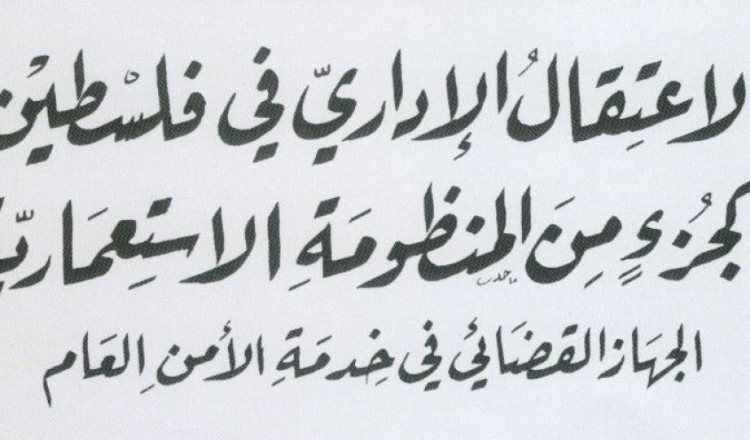 لاعتِقالُ الإداريّ في فلسْطيْن
كجُزءٍ مِنَ المنظومَةِ الاستِعمَاريّة
الجهَاز القضَائي في خِدمَةِ الأمنِ العَام